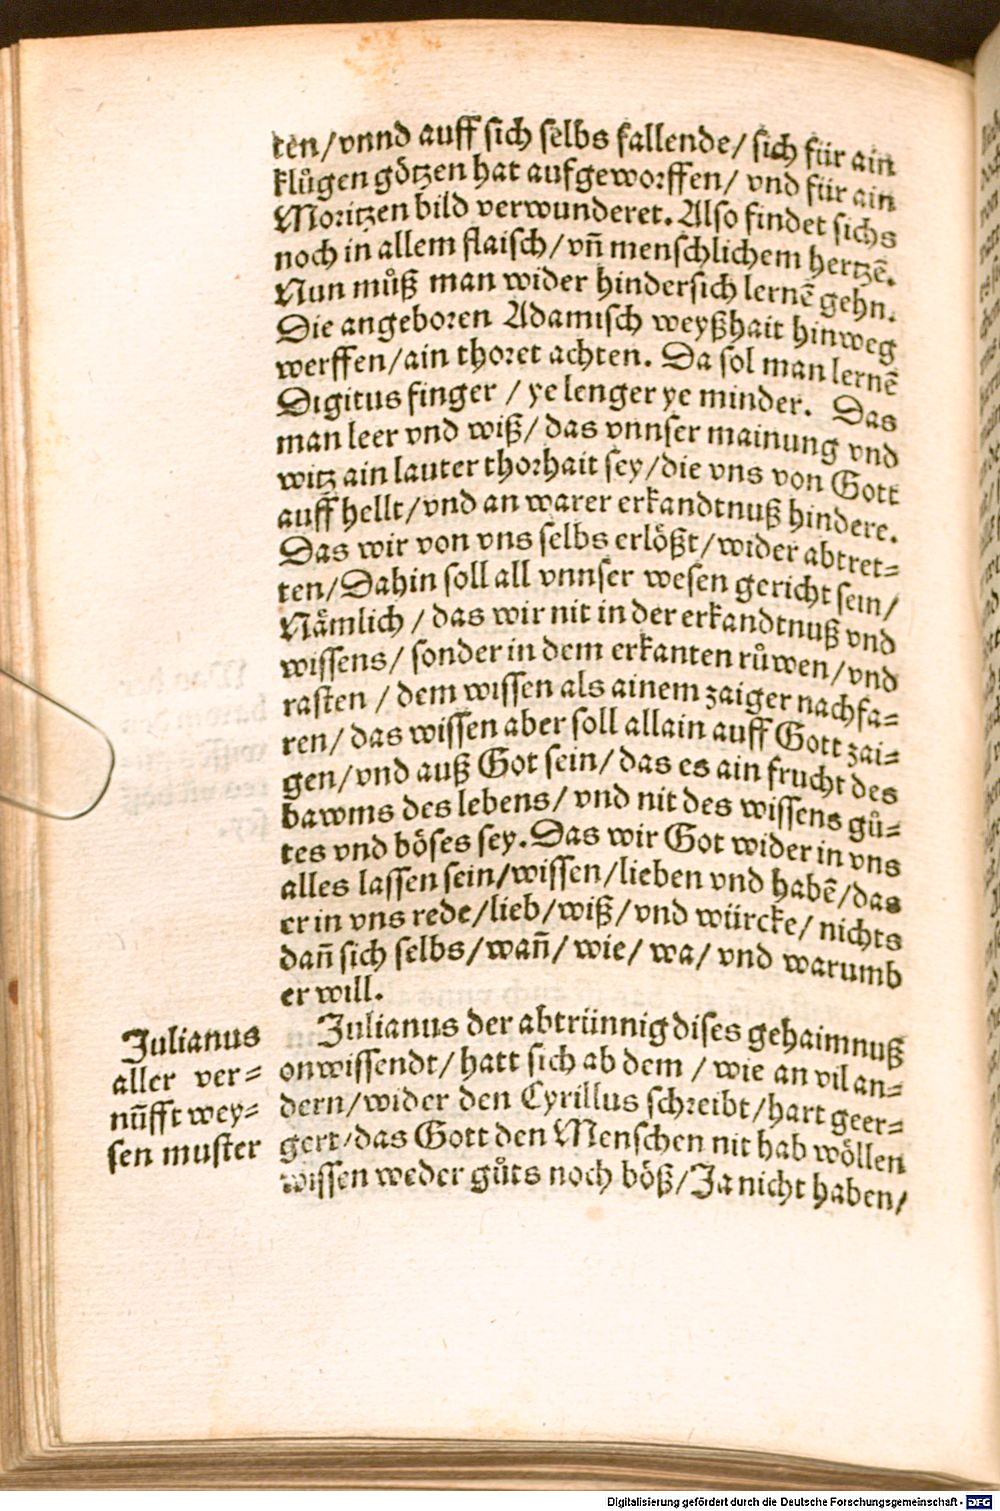 ten/vnnd auff sich selbs fallende/ sich für ain
klůgen götzen hat aufgeworffen/ vnd für ain
Moritzen bild verwunderet. Also findet sichs
noch in allem flaisch/vñ menschlichem hertzẽ.
Nun můß man wider hindersich lernẽ gehn.
Die angeboren Adamisch weyßhait hinweg
werffen/ain thoret achten. Da sol man lernẽ
Digitus finger / ye lenger ye minder. Das
man leer vnd wiß/ das vnnser mainung vnd
witz ain lauter thorhait sey/die vns von Gott
auff hellt/vnd an warer erkandtnuß hindere.
Das wir von vns selbs erlößt/wider abtret=
ten/Dahin soll all vnnser wesen gericht sein/
Nämlich / das wir nit in der erkandtnuß vnd
wissens/ sonder in dem erkanten růwen/vnd
rasten / dem wissen als ainem zaiger nachfa=
ren/ das wissen aber soll allain auff Gott zai=
gen/vnd auß Got sein/ das es ain frucht des
bawms des lebens/ vnd nit des wissens gů=
tes vnd böses sey. Das wir Got wider in vns
alles lassen sein/wissen/lieben vnd habẽ/das
er in vns rede/lieb/wiß/vnd würcke/ nichts
dañ sich selbs/wañ/ wie/ wa/ vnd warumb
er will.
Julianus der abtrünnig dises gehaimnuß
onwissendt/ hatt sich ab dem / wie an vil an=
dern/wider den Cyrillus schreibt/hart geer=
gert/das Gott den Menschen nit hab wöllen
wissen weder gůts noch böß/Ja nicht haben/
Julianus
aller ver=
nũfft wey=
sen muster
Digitalisierung gefördert durch die Deutsche Forschungsgemeinschaft - DFG